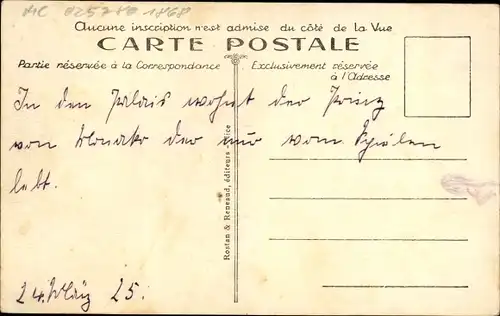 MC 025780 1868
Aucune inscription n'est admise du côté de la Vue
CARTE POSTALE
Partie réservée à la Correspondance
Exclusivement réservée
à l'Adresse
In den Palais wohnt der Prinz
von Monako der nur vom Spielen
lebt.
24. März 25.
Rostan & Reneaud, éditeurs - Nice